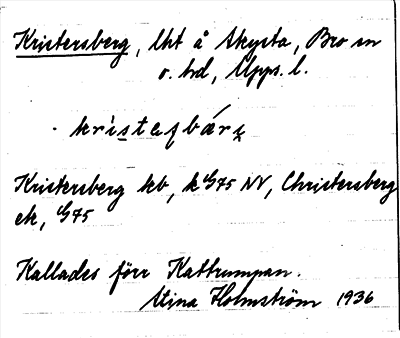 Kristersberg, lht å Skysta, Bro sn
o. hd, Upps. l.
kristəṣbärį
Kristersberg hb, k G75 NV, Christersberg
ek, G75
Kallades förr Kattrumpan.
Stina Holmström 1936